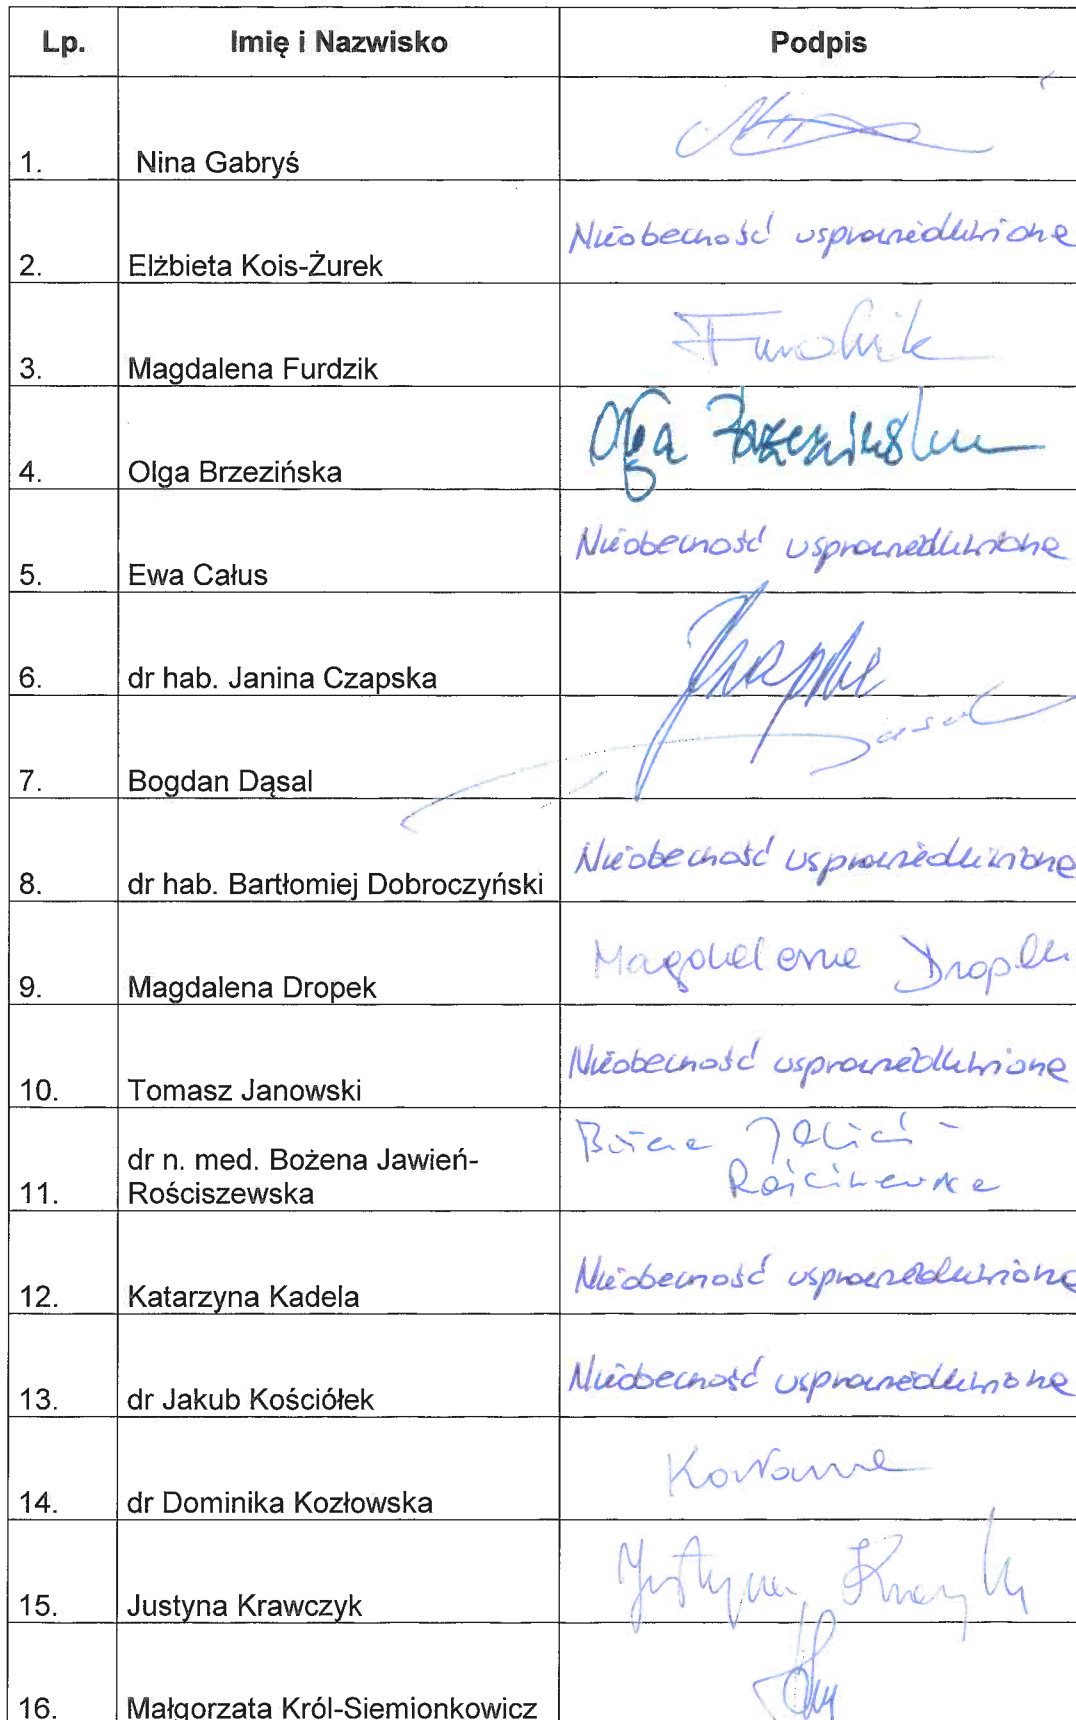 Lp. Imię i Nazwisko Podpis
1. Nina Gabryś
2. Elżbieta Kois-Żurek Nieobecność usprawiedliwiona
3. Magdalena Furdzik Furdzik
4. Olga Brzezińska Olga Brzezińska
5. Ewa Całus Nieobecność usprawiedliwiona
6. dr hab. Janina Czapska
7. Bogdan Dąsal
8. dr hab. Bartłomiej Dobroczyński Nieobecność usprawiedliwiona
9. Magdalena Dropek Magdalena Dropek
10. Tomasz Janowski Nieobecność usprawiedliwiona
11. dr n. med. Bożena Jawień-
Rościszewska
12. Katarzyna Kadela Nieobecność usprawiedliwiona
13. dr Jakub Kościółek Nieobecność usprawiedliwiona
14. dr Dominika Kozłowska
15. Justyna Krawczyk Justyna Krawczyk
16. Małgorzata Król-Siemionkowicz